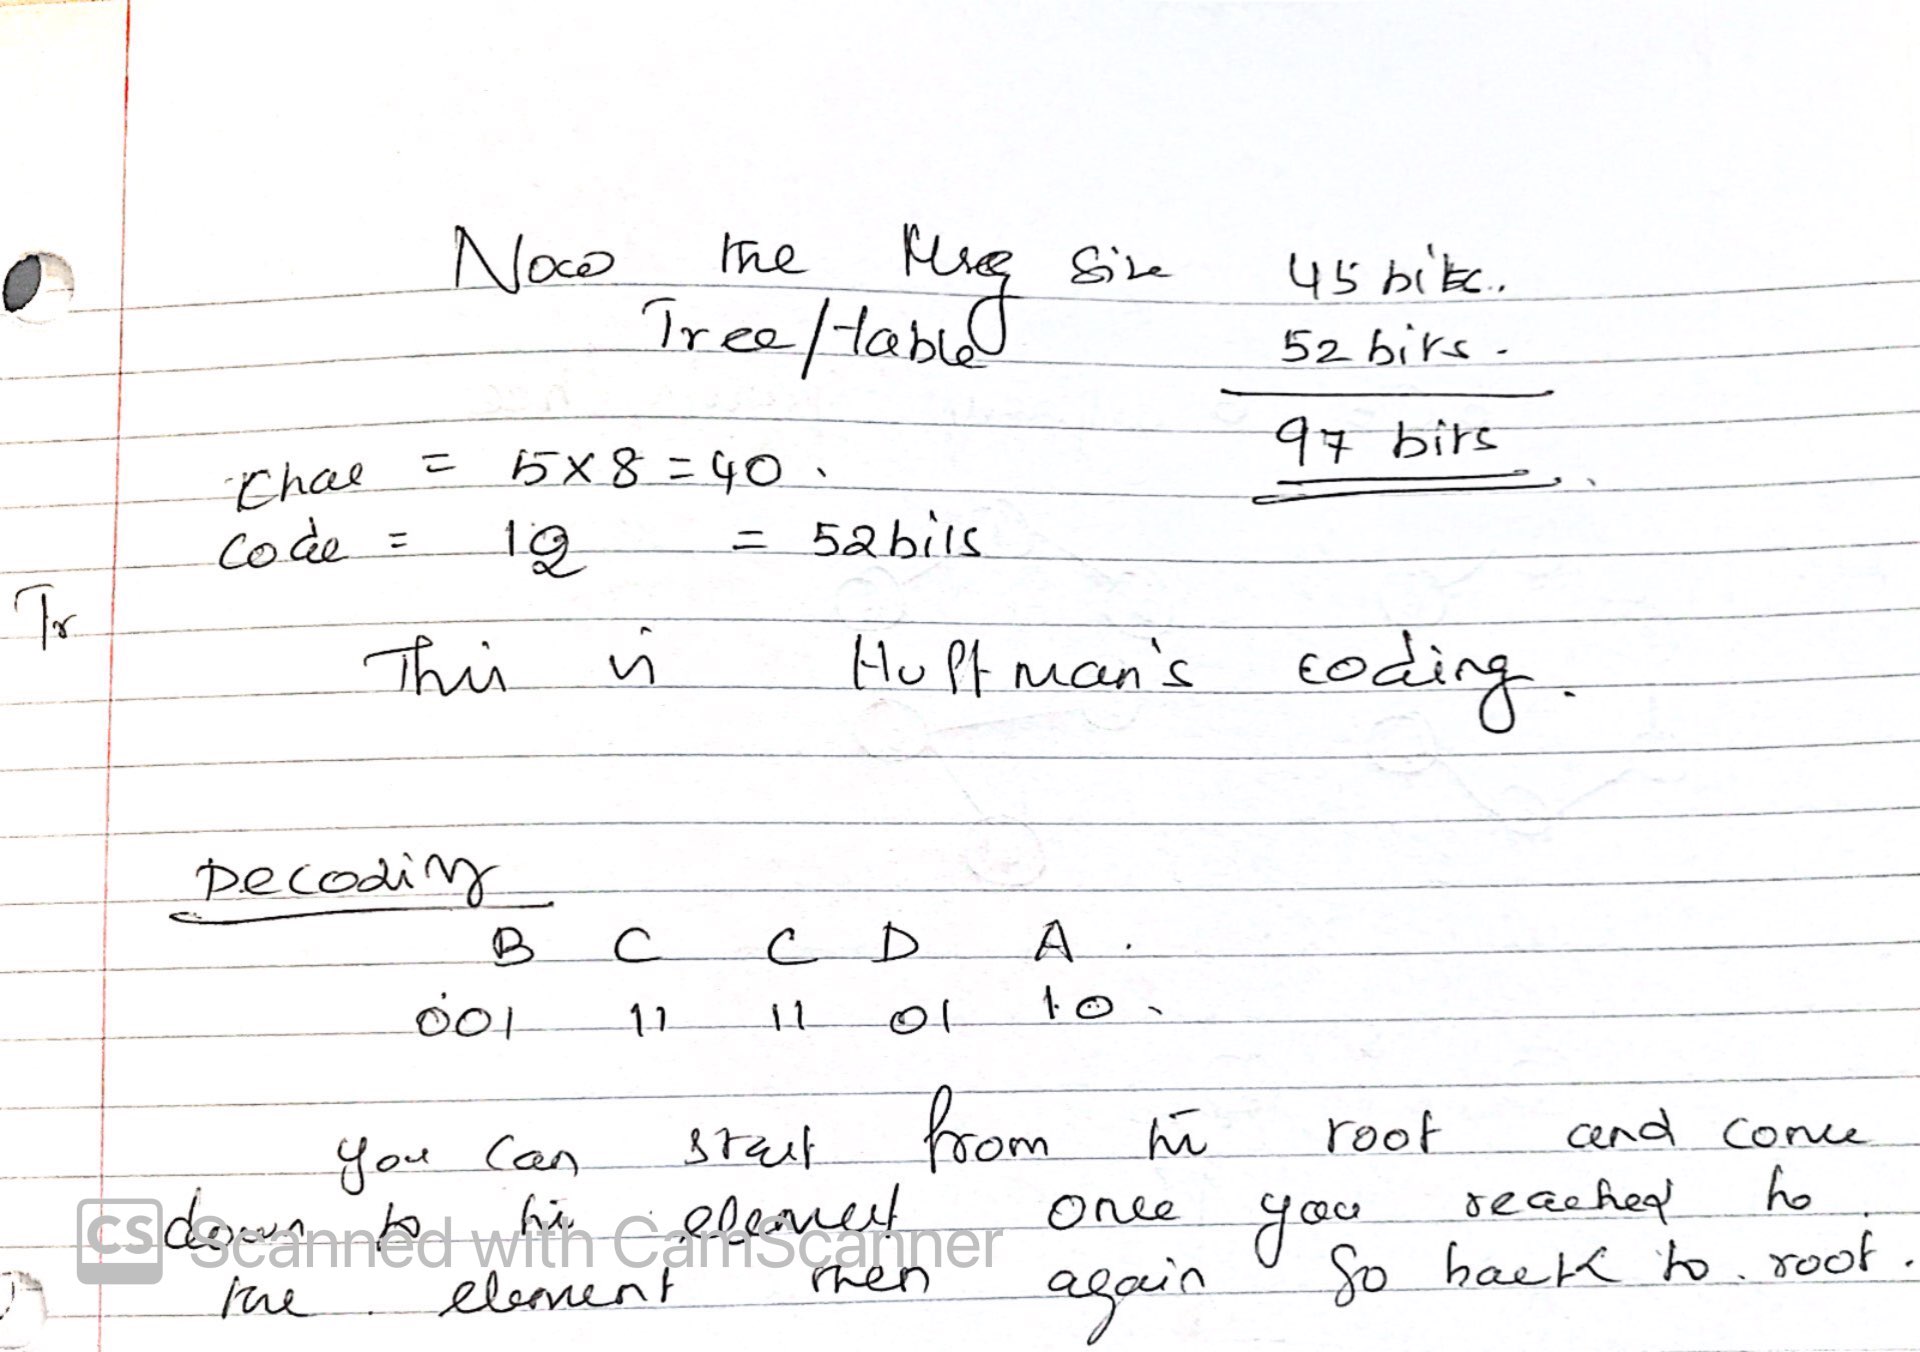 Now the Msg size 45 bits.
Tree/table 52 bits.
97 bits
char = 5x8 = 40.
code = 12 = 52 bits
Tr
This is Huffman's coding.
Decoding
B C C D A.
001 11 11 01 10.
you can start from the root and come
down to the element once you reached to
the element then again go back to root.
CS Scanned with CamScanner